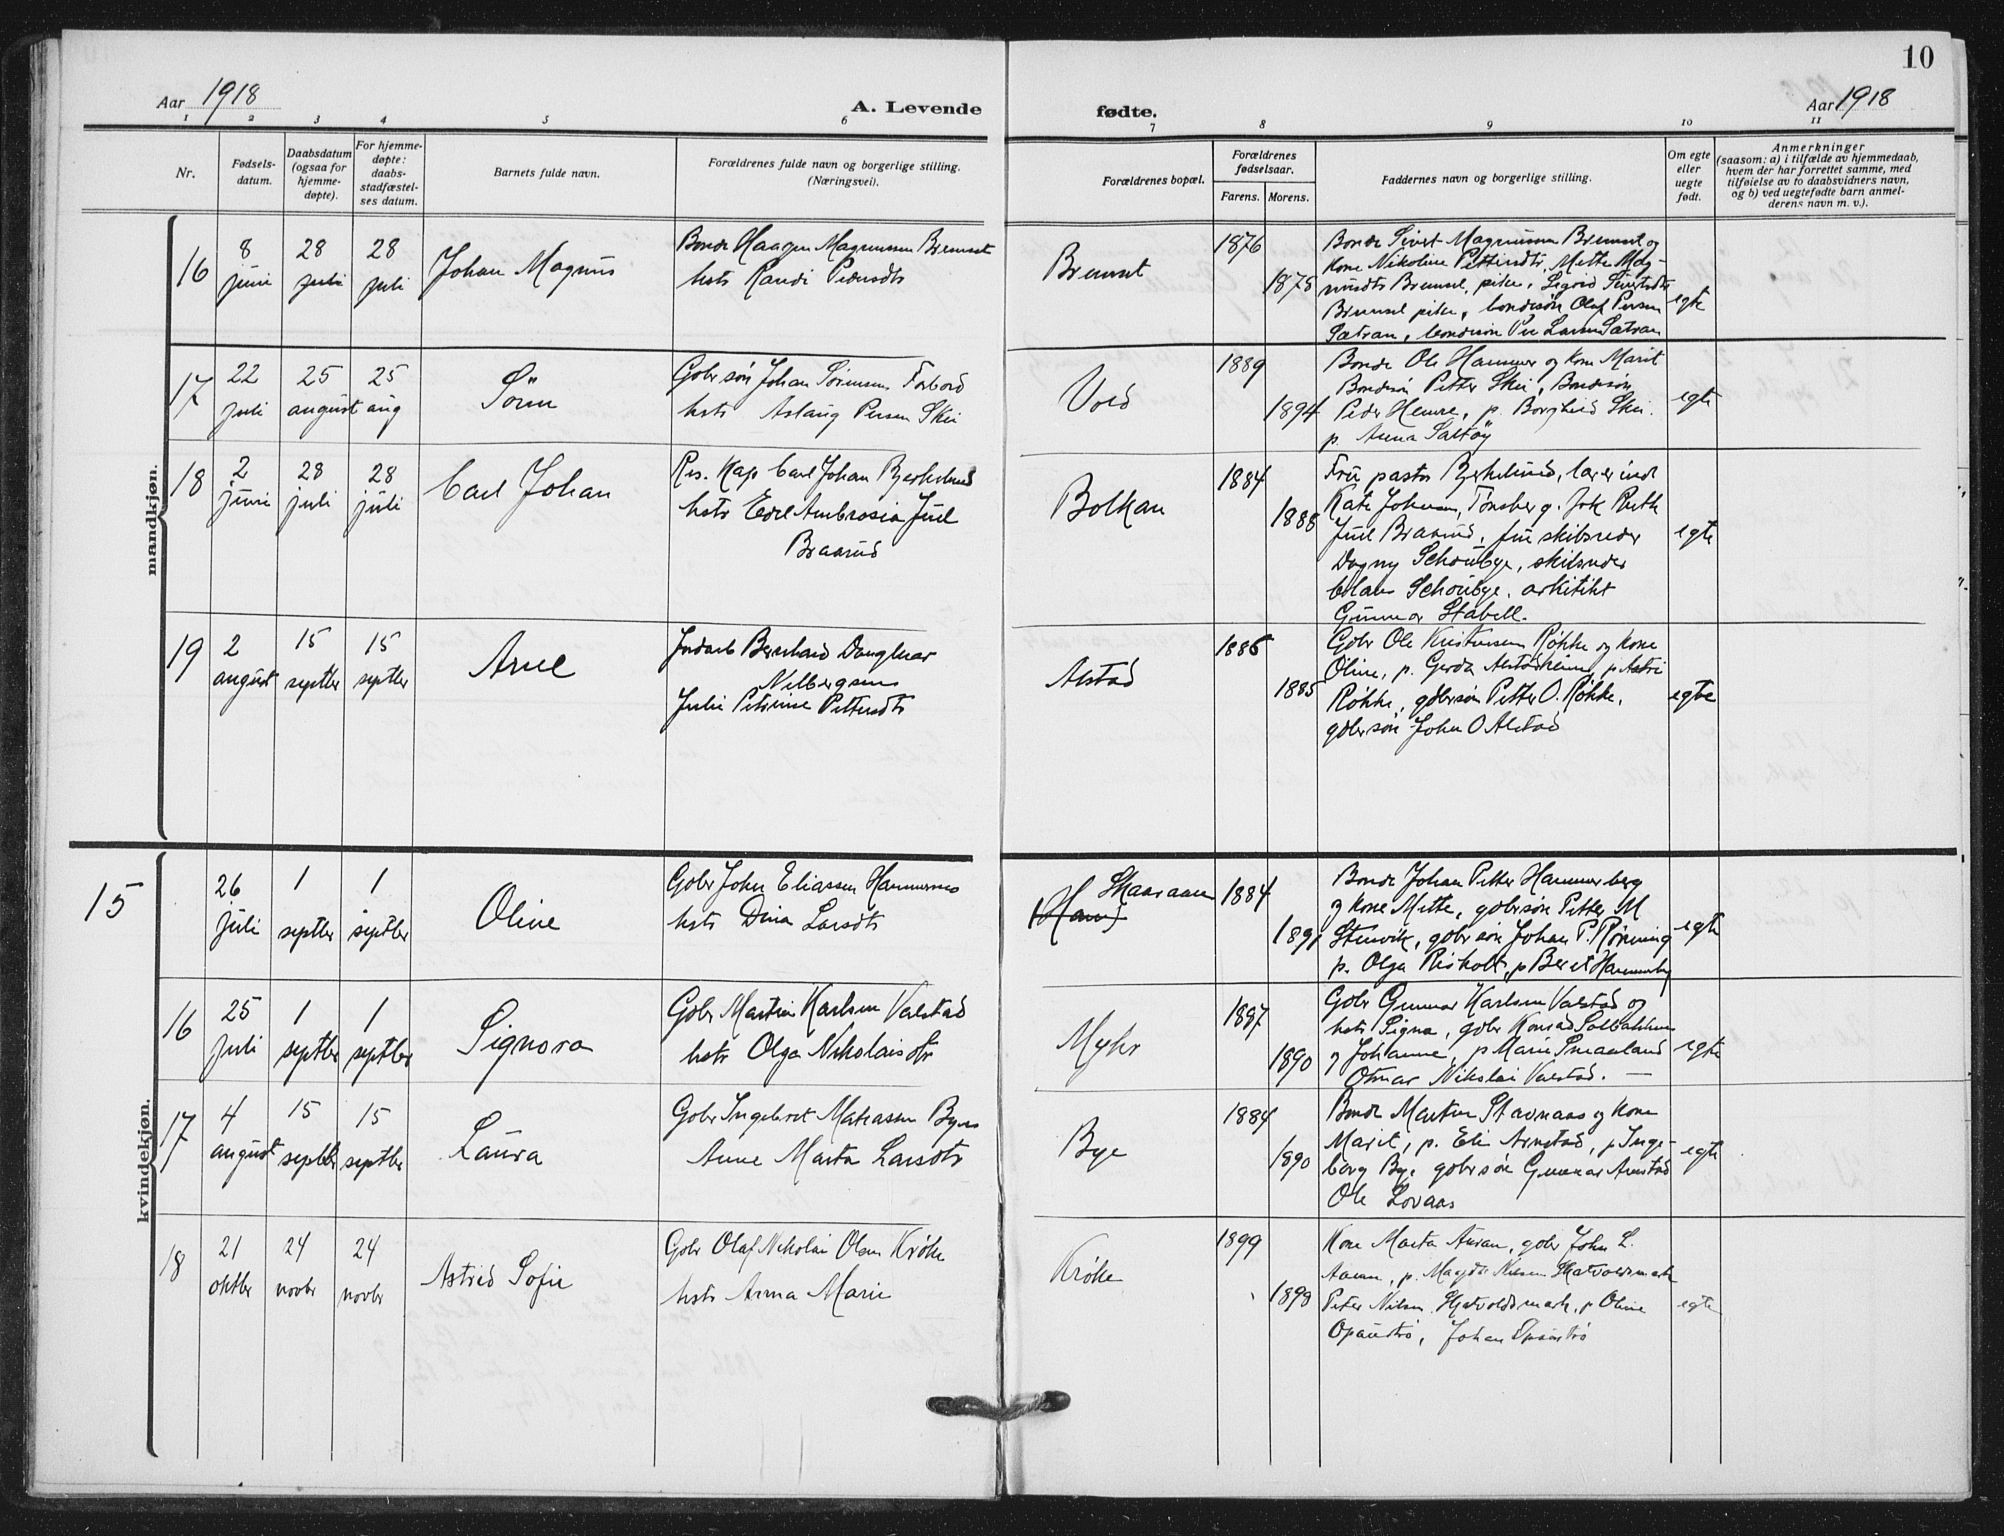 10
Aar 1918
A. Levende
fødte.
Aar 1918
1 2 3 4 5 6 7 8 9 10 11
Nr.
Fødsels-
datum.
Daabsdatum
(ogsaa for
hjemme-
døpte).
For hjemme-
døpte:
daabs-
stadfæstel-
ses datum.
Barnets fulde navn.
Forældrenes fulde navn og borgerlige stilling.
(Næringsvei).
Forældrenes bopæl.
Forældrenes
fødselsaar.
Farens. Morens.
Faddernes navn og borgerlige stilling.
Om egte
eller
uegte
født.
Anmerkninger
(saasom: a) i tilfælde av hjemmedaab,
hvem der har forrettet samme, med
tilføielse av to daabsvidners navn,
og b) ved uegtefødte barn anmel-
derens navn m. v.).
mandkjøn.
16
8
juni
28
juli
28
juli
Johan Magnus
Bonde Haagen Magnussen Bremset
hstr Randi Pedersdtr
Bremset
1876
1878
Bonde Sivert Magnussen Bremset og
Kone Nikoline Pettersdtr, Mette Mag-
nusdtr Bremset, pike, Sigrid Sivertsdtr
Bremset pike, bondesøn Olaf Persen
Sætran, bondesøn Per Larsen Sætran
egte
17
22
juli
25
august
25
aug
Sörn
Gbr søn Johan Sørensen Forbord
hstr Aslaug Persen Skei
Vold
1889
1894
Bonde Ole Hammer og kone Marit
Bondesøn Petter Skei, Bondesøn
Peder Hemre, p. Borghild Skei.
p. Anna Saltöy
egte
18
2
juni
28
juli
28
juli
Carl Johan
Res. Kap Carl Johan Bjerkelund
hstr Edel Ambrosia Juel
Braarud
Bolkan
1884
1888
Fru pastor Bjerkelund, lærerinde
Kate Johnsen, Tønsberg. frk Ruth
Juel Braarud, fru skibsreder
Dagny Schoubye, skibsreder
Claus Schoubye, arkitekt
Gunnar Stabell.
egte
19
2
august
15
septbr
15
septbr
Arne
Bernhard
Julie Petrine Pettersdtr
Alstad
1886
1885
Gbr Ole Kristensen Røkke og kone
Oline, p. Gerda Alstadheim, p Astri
Røkke, gbr søn Petter O. Røkke,
gbr søn John O Alstad
egte
kvindekjøn.
15
26
juli
1
septbr
1
septbr
Oline
Gbr John Eliassen Hammernes
hstr Dina Larsdtr
Skaaraan
(Ham)
1884
1891
Bonde Johan Petter Hammerberg
og kone Mette, gbr søn Petter M
Stenvik, gbr søn Johan P. Rønning
p. Olga Risholt, p Beret Hammerberg
egte
16
25
juli
1
septbr
1
septbr
Signora
Gbr Martin Karlsen Valstad
hstr Olga Nikolaisdtr
Myhr
1887
1890
Gbr Gunnar Karlsen Valstad og
hstr Signa, gbr Konrad Solbakken
og Johanne, p Marie Smaaland
Otmar Nikolai Valstad. —
egte
17
4
august
15
septbr
15
septbr
Laura
Gbr Ingebret Matiassen Bye
Anne Marta Larsdtr
Bye
1884
1890
Bonde Martin Stavnaas og kone
Marit, p. Eli Arnstad, p Inge-
borg Bye gbr søn Gunnar Arnstad
Ole Lovaas
egte
18
21
oktbr
24
novbr
24
novbr
Astrid Sofie
Gbr Olaf Nikolai Olsen Krøke
hstr Anna Marie
Krøke
1899
1898
Kone Marta Auran, gbr John L.
Auran, p. Magda Nilsen Skatvoldsmark
Peter Nilsen Skatvoldsmark, p Oline
Opaustrø, Johan Opaustrø
egte